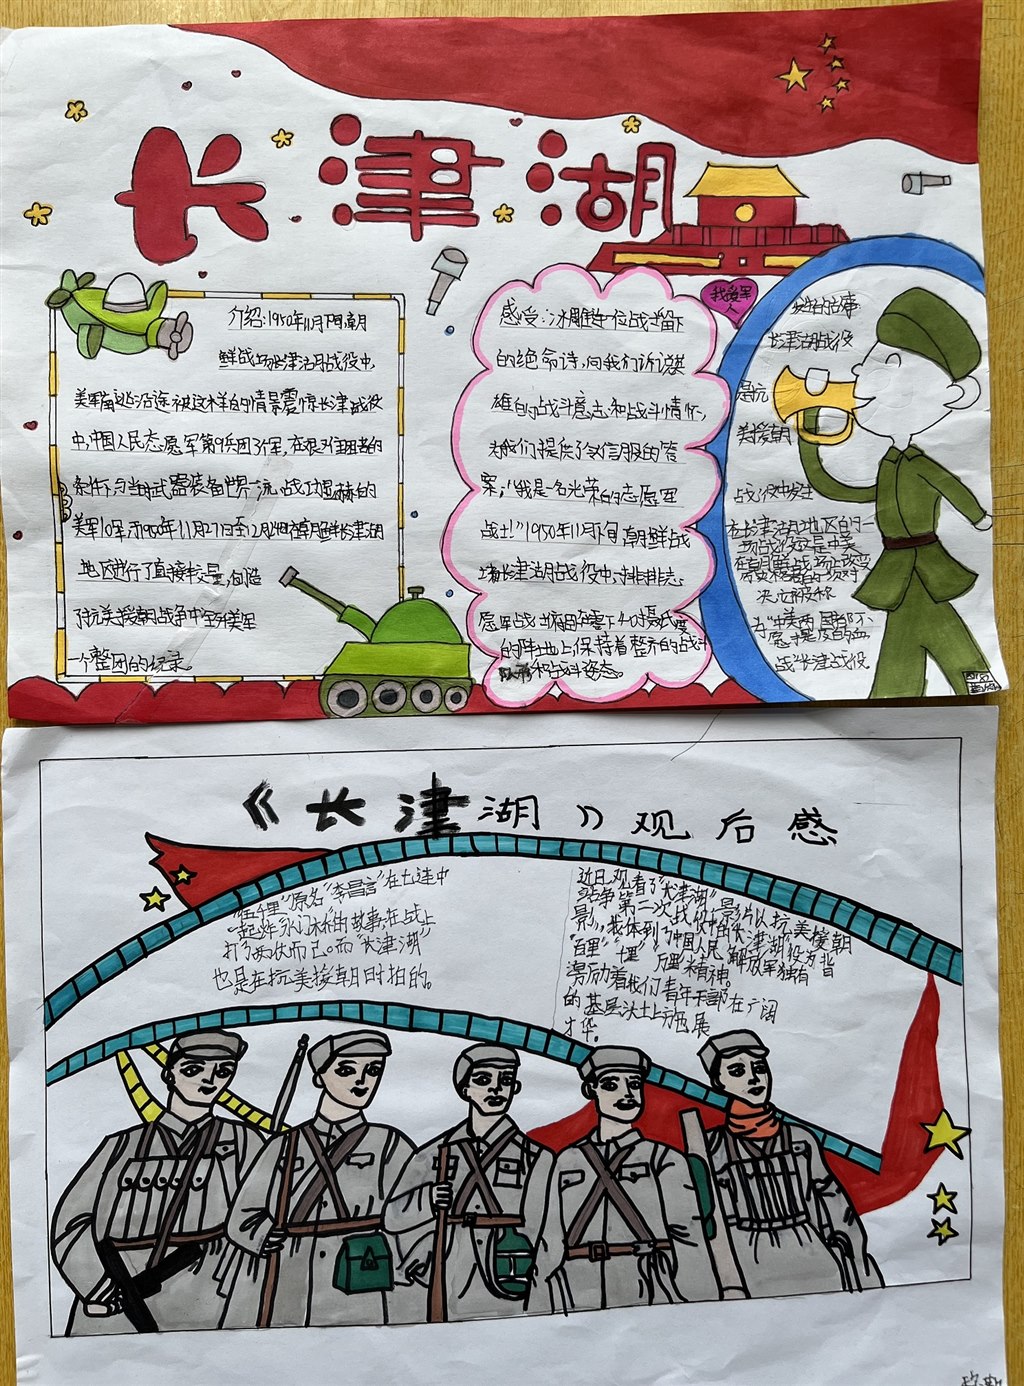 长津湖
介绍:1950年11月下旬,朝
鲜战场长津湖战役中,
美军南逃沿途被这样的情景震惊长津战役
中,中国人民志愿军第9兵团3个军,在很
条件下,与当时武器装备世界一流、战功显赫的
美军10军,于1950年11月27日至12月
地区进行了直接较量,创造
了抗美援朝战争中全歼美军
一个整团的纪录。
我爱军
人
感受:冰雕连一位战士留下
的绝命诗,向我们诉说英
雄的战斗意志和战斗情怀,
为我们提供了令人信服的答
案:“我是一名光荣的志愿军
战士!”1950年11月下旬,朝鲜战
场长津湖战役中,一排排志
愿军战士俯卧在零下40摄氏度
的阵地上,保持着整齐的战斗
队形和战斗姿态。
发生的故事
长津湖战役
是抗
美援朝
战役中发生
在长津湖地区的一
场战役,这是中美
在朝鲜战场上改变
决立
为“中美两国都不
愿提及的血
战”长津战役。
《长津湖》观后感
“伍千里”原名“李昌言”在七连中
“起炸”水门桥的故事,在战上
打了两次而已。而“长津湖”
也是在抗美援朝时拍的。
近日观看了“长津湖”影片以抗美援朝
战争第二次战役中的长津湖役为背
影,我体到了中国人民解放军独有
“百里”“千里”“万里”精神。
激励着我们青年干部在广阔
的基层沃土上
才华。